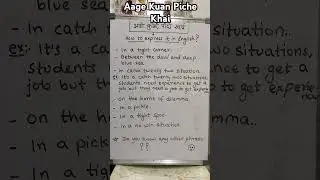 Aage Kuan Piche
Khai
आगे कुआं, पीछे खाई
How to express it in English?
- In a tight corner
- Between the devil and deep
blue sea
- In catch twenty two situation
ex: It's a catch twenty two situations,
students need experience to get a
job but they need a job to get experience
- on the horns of dilemma
- In a pickle
- In a tight spot
- In a no win situation
Do you know any other phrases
??
- In catch
ex: It's a
Students
job but
- on the
- In a
two situations,
to get a
get exper
dilemma..